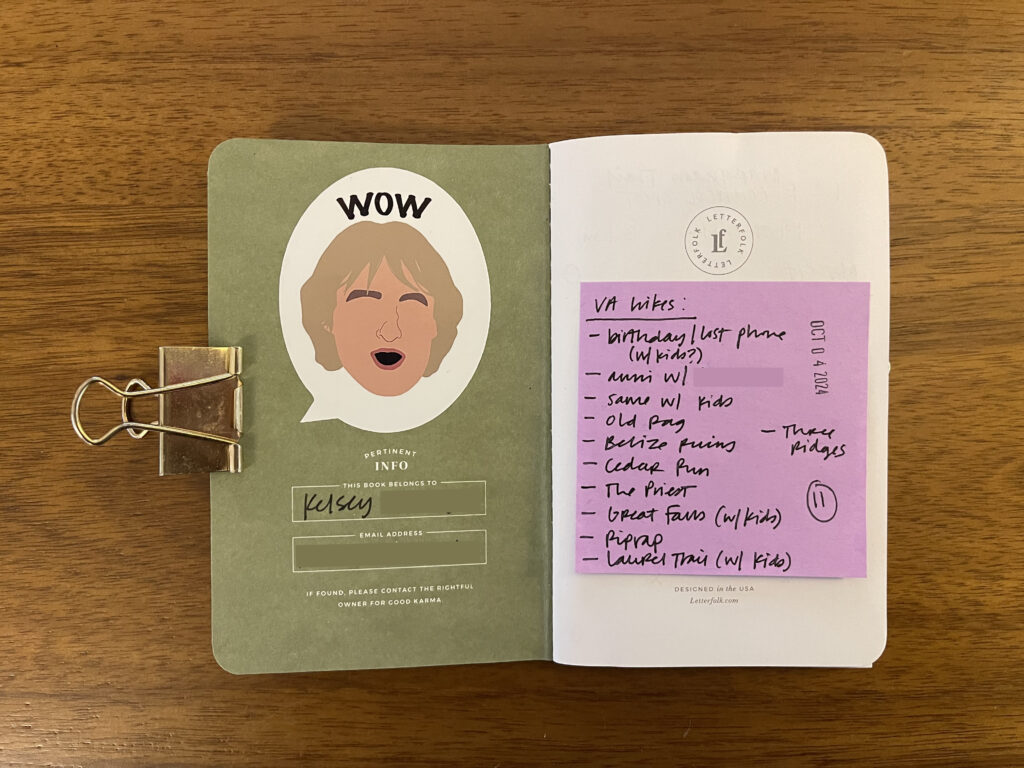 WOW
PERTINENT
INFO
THIS BOOK BELONGS TO
Kelsey
EMAIL ADDRESS
IF FOUND, PLEASE CONTACT THE RIGHTFUL
OWNER FOR GOOD KARMA.
LETTERFOLK LETTERFOLK
Lf
VA hikes:
- birthday/lost phone
(w/kids?)
- anni w/
- same w/ kids
- Old Rag
- Belize Ruins
- Cedar Run
- The Priest
- Great Falls (w/kids)
- Riprap
- Laurel Trail (w/ kids)
OCT 04 2024
- Three
Ridges
11
DESIGNED in the USA
Letterfolk.com